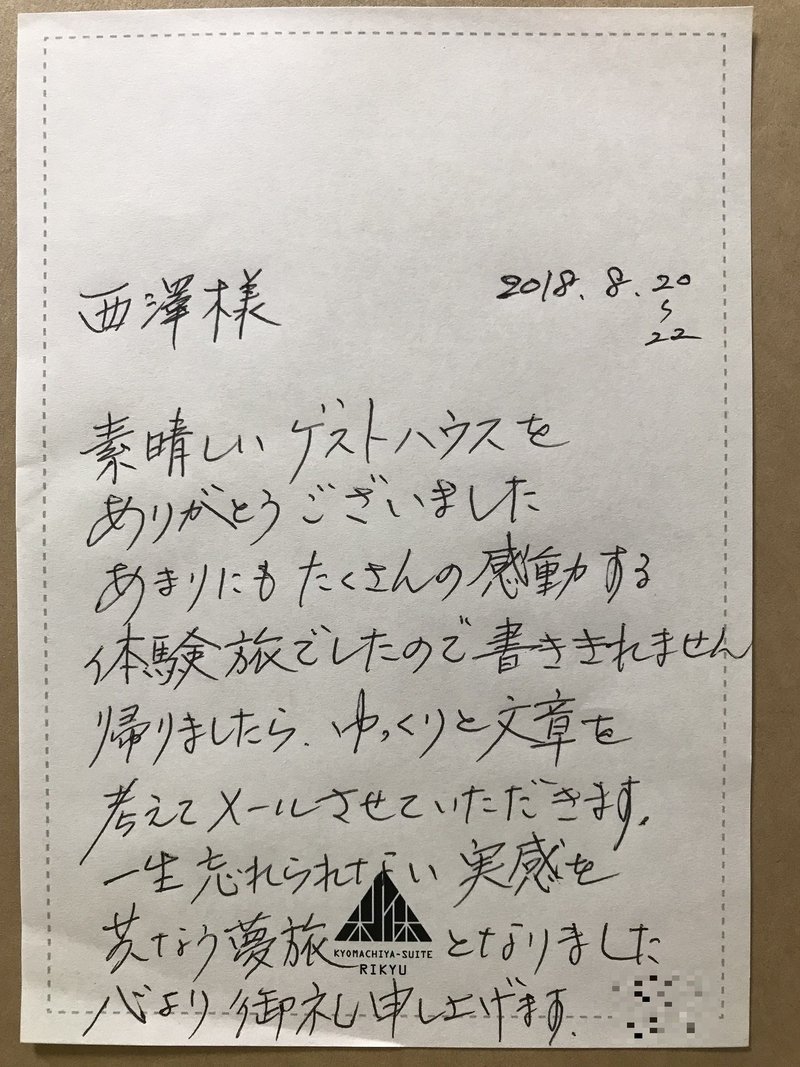 西澤様
2018.8.20
〜
22
素晴しいゲストハウスを
ありがとうございました
あまりにもたくさんの感動する
体験旅でしたので書ききれません
帰りましたら、ゆっくりと文章を
考えてメールさせていただきます。
一生忘れられない実感を
共なう夢旅となりました
心より御礼申し上げます。
KYOMACHIYA-SUITE
RIKYU